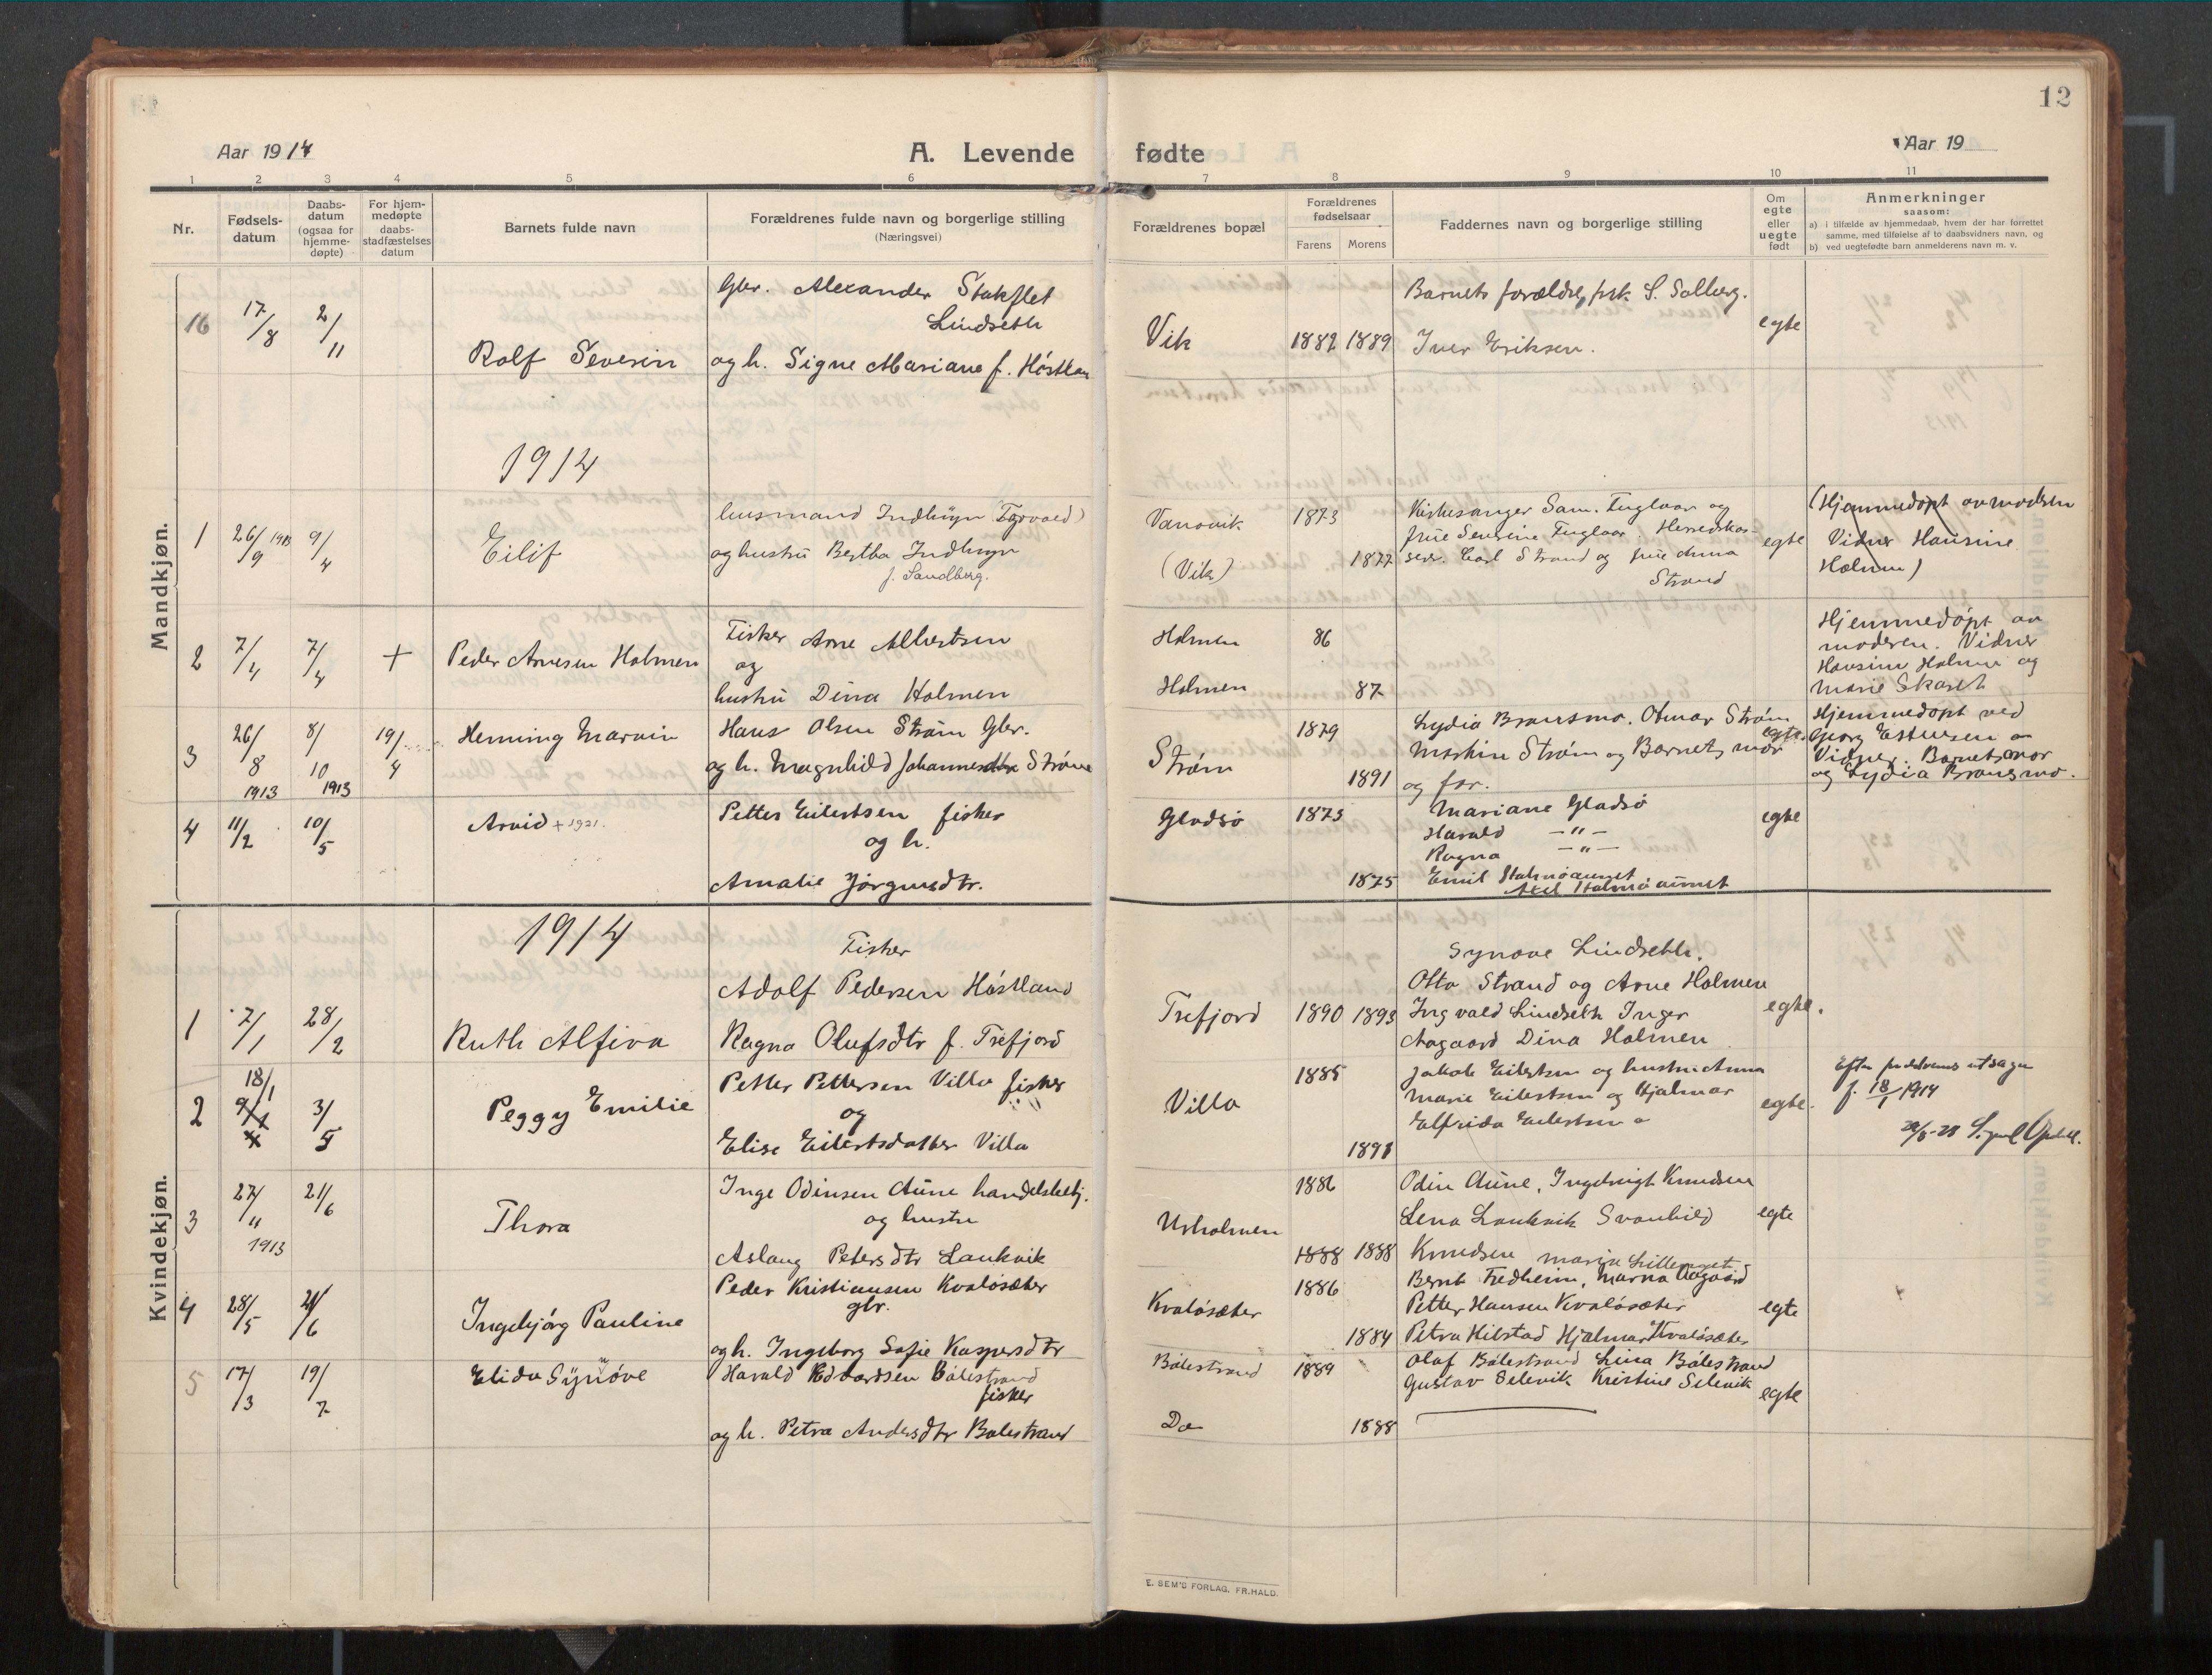 12
Aar 1914
A. Levende fødte
Aar 19
1 2 3 4 5 6 7 8 9 10 11
Nr.
Fødsels-
datum
Daabs-
datum
(ogsaa for
hjemme-
døpte)
For hjem-
medøpte
daabs-
stadfæstelses
datum
Barnets fulde navn
Forældrenes fulde navn og borgerlige stilling
(Næringsvei)
Forældrenes bopæl
Forældrenes
fødselsaar
Farens Morens
Faddernes navn og borgerlige stilling
Om
egte
eller
uegte
født
Anmerkninger
saasom:
a) i tilfælde av hjemmedaab, hvem der har forrettet
samme, med tilføielse af to daabsvidners navn, og
b) ved uegtefødte barn anmelderens navn m. v.
Mandkjøn.
16 17/8 2/11 Rolf Severin
Gbr. Alexander Stokflet
Lindseth
og h. Signe Mariane f. Høstlan
Vik 1882 1889
Barnets forældre, frk. S. Solberg.
Iver Eriksen.
egte
1914
1 26/9 1913 9/4 Eilif
husmand Indhyn (Torvald)
og hustru Bertha Indhyn
f. Sandberg.
Vanovik 1873
(Vik) 1877
Kirkesanger Sam. Fuglaar og
frue Severine Fuglaar. Herredskas-
serer. Carl Strand og frue Anna
Strand
egte
(Hjemmedøpt av moderen
Vidner Hansine
Holmen)
2 7/4 7/4 + Peder Arnesen Holmen
Fisker Arne Albertsen
og
hustru Dina Holmen
Holmen 86
Holmen 87
Hjemmedøpt av
moderen. Vidner
Hansine Holmen og
Marie Skaret
3 26/8 1913 8/10 1913 19/4 Henning Marvin
Hans Olsen Strøm Gbr.
og h. Magnhild Johannesdtr Strøm
Strøm 1879
1891
Lydia Bransmo. Otmar Strøm
Strøm og Barnets mor
og far.
egte.
Hjemmedøpt ved
Georg
Vidner. Barnets mor
og Lydia Bransmo.
4 11/2 10/5 Arvid + 1921.
Petter Eilertsen fisker
og h.
Amalie Jørgensdtr.
Gladsø 1873
1875
Mariane Gladsø
Harald — " —
Ragna — " —
Emil Holmøaunet
Axel Holmøaunet
egte
Kvindekjøn.
1914
1 7/1 28/2 Ruth Alfiva
Fisker
Adolf Pedersen Høstland
Ragna Olufsdtr f. Trefjord
Trefjord 1890 1893
Synøve Lindseth.
Otto Strand og Arne Holmen
Ingvald Lindseth Inger
Aagaard Dina Holmen
egte.
2 18/1 3/5 Peggy Emilie
Petter Pettersen Villa fisker
og
Elise Eilertsdatter Villa
Villa 1885
1891
Jakob Eilertsen og hustru Anna
Marie Eilertsen og Hjalmar
Elfrida Eilertsen
egte.
Efter forældrenes utsagn
f. 18/1 1914
3 27/11 1913 21/6 Thora
Inge Odinsen Aune handelsbetj.
og hustru
Aslaug Petersdtr Laukvik
Urholmen 1886
1888 1888
Odin Aune, Ingebrigt Knudsen
Lena Laukvik Svanhild
Knudsen
egte
4 28/5 21/6 Ingebjørg Pauline
Peder Kristiansen Kvaløsæter
gbr.
og h. Ingeborg Sofie Kaspersdtr
Kvaløsæter 1886
1884
Bernt Fredheim, Marna Aagaard
Petter Hansen Kvaløsæter
Petra Hilstad Hjalmar Kvaløsæter
egte
5 17/3 19/7 Elida Synøve
Harald Edvardsen Bålestrand
fisker
og h. Petra Andersdtr Bålestrand
Bålestrand 1889
Do 1888
Olaf Bålestrand Lina Bålestrand
Gustav Selevik Kristine Selevik
egte
E. SEM'S FORLAG, FR.HALD.